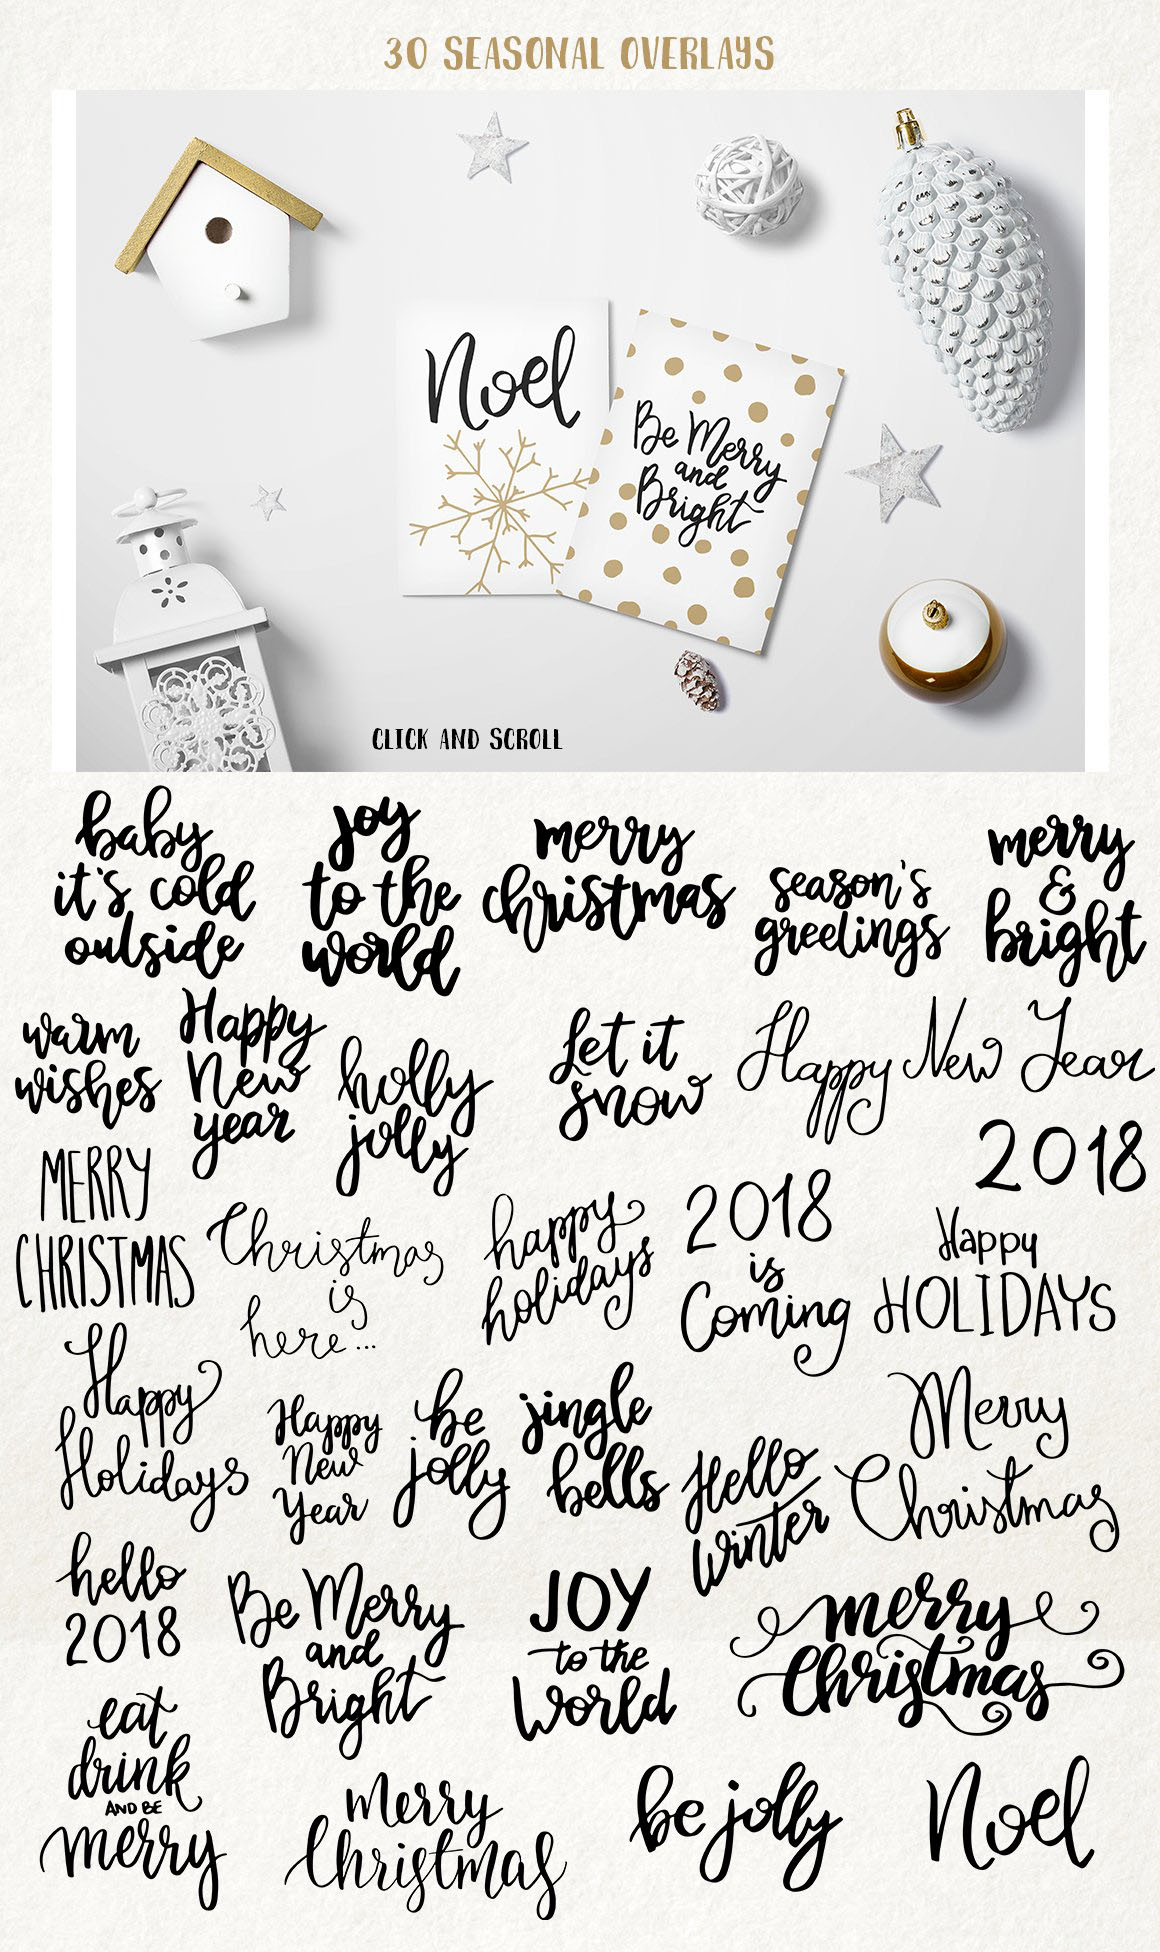 30 SEASONAL OVERLAYS
Noel
Be Merry
and
Bright
CLICK AND SCROLL
baby
it's cold
outside
joy
to the
world
merry
christmas
season's
greetings
merry
&
bright
warm
wishes
Happy
New
year
holly
jolly
Let it
snow
Happy New Year
2018
MERRY
CHRISTMAS
Christmas
is
here...
happy
holidays
2018
is
Coming
Happy
HOLIDAYS
Happy
Holidays
Happy
New
Year
be
jolly
jingle
bells
Hello
winter
Merry
Christmas
hello
2018
Be Merry
and
Bright
JOY
to the
World
merry
Christmas
eat
drink
AND BE
merry
merry
Christmas
be jolly
Noel